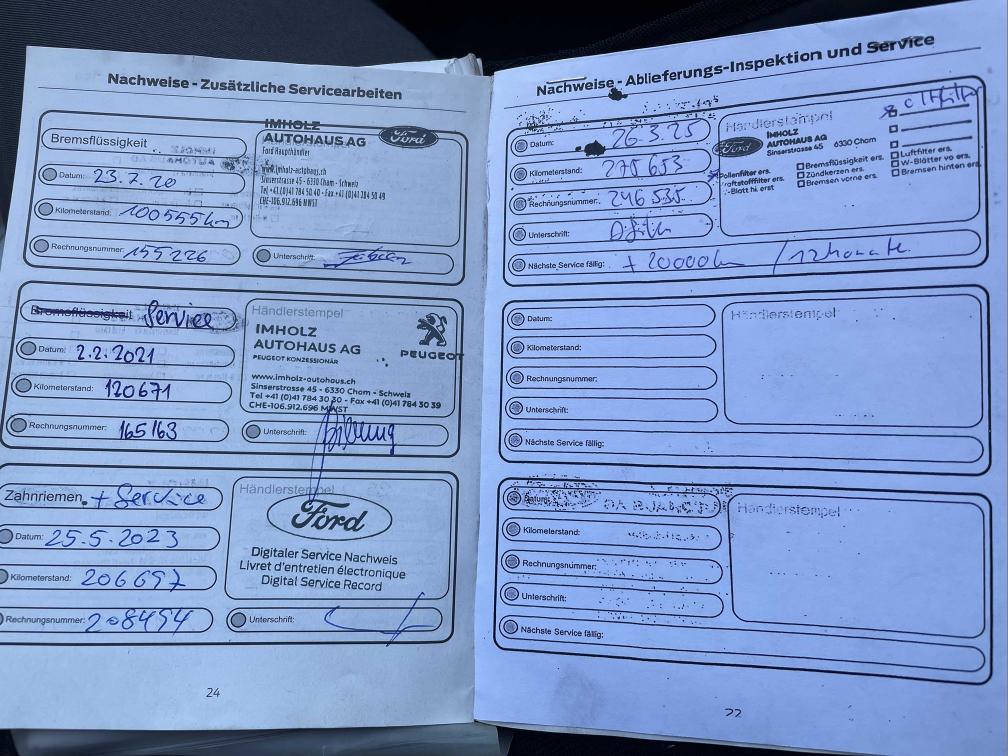 Nachweise - Zusätzliche Servicearbeiten
Bremsflüssigkeit
Datum: 23.7.20
Kilometerstand: 100555km
Rechnungsnummer: 155226
IMHOLZ
AUTOHAUS AG
Ford
Ford Haupthändler
www.imholz-autohaus.ch
Sinserstrasse 45 - 6330 Cham - Schweiz
Tel +41 (0)41 784 50 40 - Fax +41 (0)41 784 50 49
CHE-106.912.696 MWST
Unterschrift:
Bremsflüssigkeit Service
Datum: 2.2.2021
Kilometerstand: 120671
Rechnungsnummer: 165163
Händlerstempel
IMHOLZ
AUTOHAUS AG
PEUGEOT KONZESSIONÄR
PEUGEOT
www.imholz-autohaus.ch
Sinserstrasse 45 - 6330 Cham - Schweiz
Tel +41 (0)41 784 30 30 - Fax +41 (0)41 784 30 39
CHE-106.912.696 MWST
Unterschrift:
Zahnriemen + Service
Datum: 25.5.2023
Kilometerstand: 206697
Rechnungsnummer: 208494
Händlerstempel
Ford
Digitaler Service Nachweis
Livret d'entretien électronique
Digital Service Record
Unterschrift:
24
Nachweise - Ablieferungs-Inspektion und Service
Datum: 26.3.25
Kilometerstand: 275653
Rechnungsnummer: 246535
Unterschrift:
Nächste Service fällig: + 20000km / 12 Monate
Händlerstempel
Ford
IMHOLZ
AUTOHAUS AG
Sinserstrasse 45 6330 Cham
Pollenfilter ers.
Kraftstofffilter ers.
W-Blatt hi erst
Bremsflüssigkeit ers.
Zündkerzen ers.
Bremsen vorne ers.
Luftfilter ers.
W-Blätter vo ers.
Bremsen hinten ers.
Datum:
Kilometerstand:
Rechnungsnummer:
Unterschrift:
Nächste Service fällig:
Händlerstempel
Datum:
Kilometerstand:
Rechnungsnummer:
Unterschrift:
Nächste Service fällig:
Händlerstempel
22